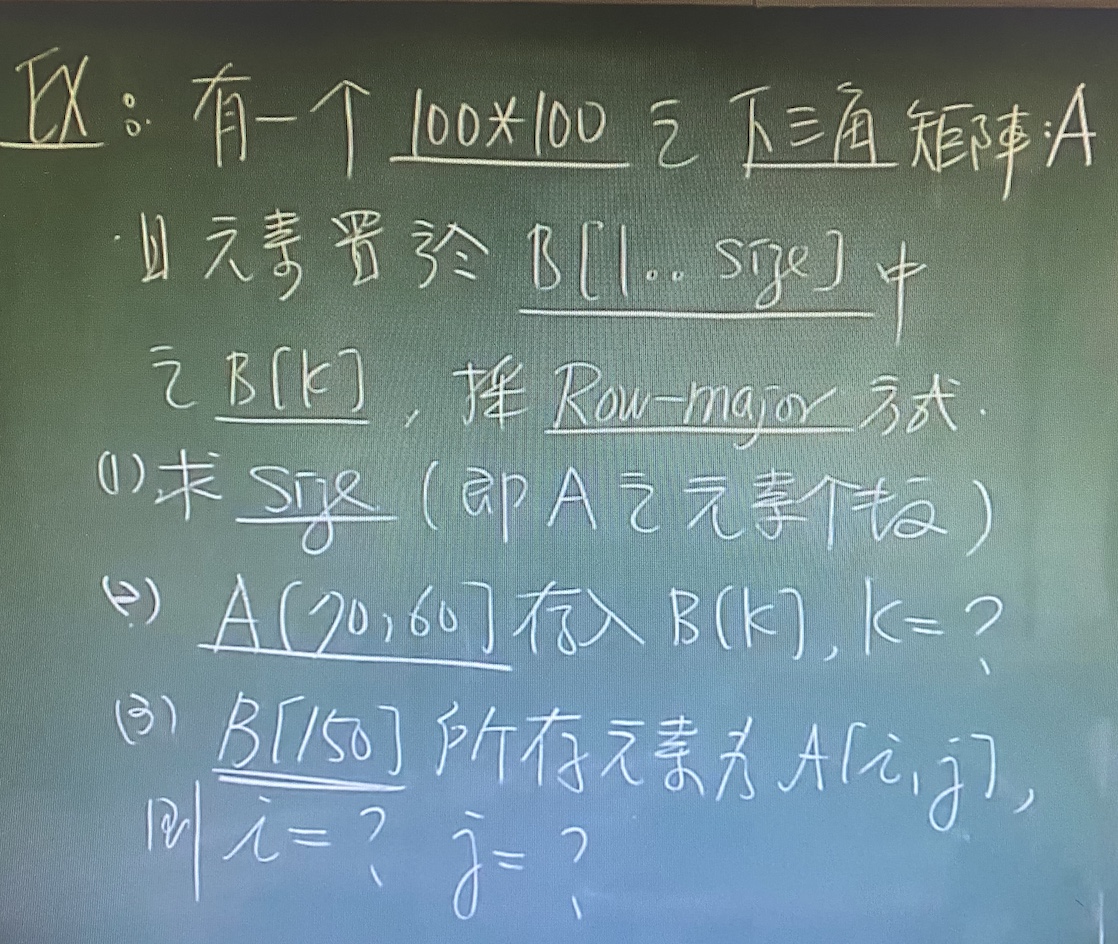 EX: 有一个 100*100 之 下三角 矩陣:A
且元素置於 B[1.. size] 中
之 B[k], 採 Row-major 方式.
(1) 求 size (即 A 之元素个数)
(2) A[70,60] 存入 B[k], k=?
(3) B[150] 所存元素为 A[i,j],
则 i=? j=?